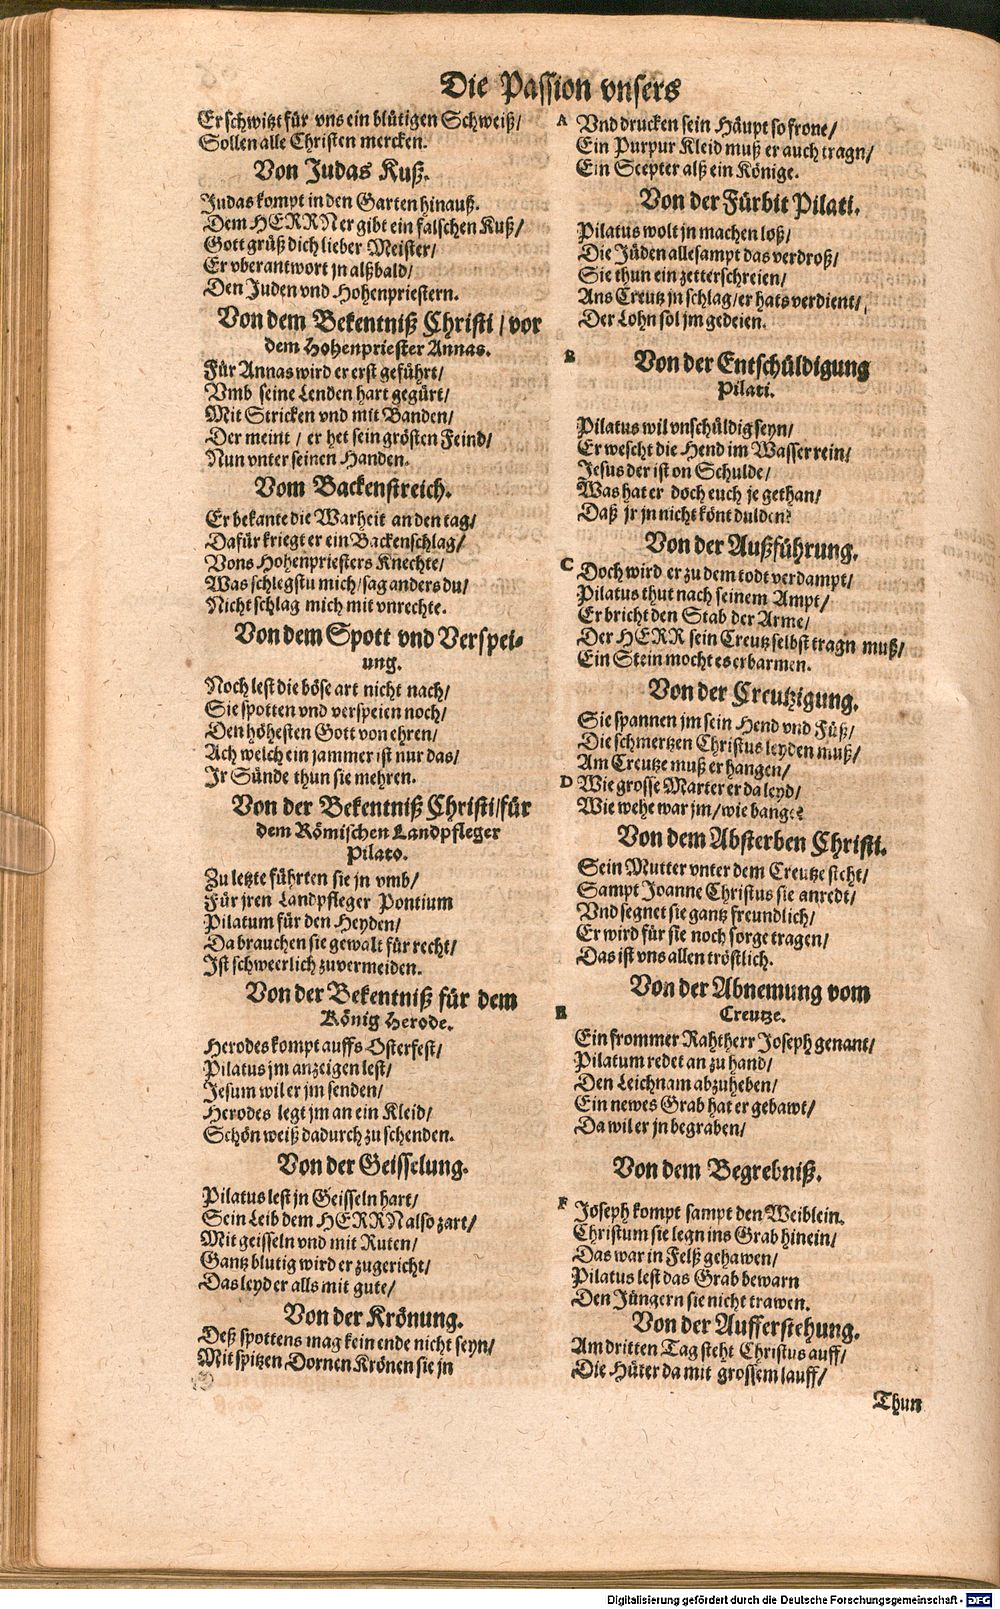 Die Passion vnsers
Er schwitzt für vns ein blütigen Schweiß/
Sollen alle Christen mercken.
Von Judas Kuß.
Judas kompt in den Garten hinauß.
Dem HERRN er gibt ein falschen Kuß/
Gott grüß dich lieber Meister/
Er vberantwort jn alßbald/
Den Juden vnd Hohenpriestern.
Von dem Bekentniß Christi / vor
dem Hohenpriester Annas.
Für Annas wird er erst geführt/
Vmb seine Lenden hart gegürt/
Mit Stricken vnd mit Banden/
Der meint / er het sein grösten Feind/
Nun vnter seinen Handen.
Vom Backenstreich.
Er bekante die Warheit an den tag/
Dafür kriegt er ein Backenschlag/
Vons Hohenpriesters Knechte/
Was schlegstu mich/sag anders du/
Nicht schlag mich mit vnrechte.
Von dem Spott vnd Verspei-
ung.
Noch lest die böse art nicht nach/
Sie spotten vnd verspeien noch/
Den höhesten Gott von ehren/
Ach welch ein jammer ist nur das/
Jr Sünde thun sie mehren.
Von der Bekentniß Christi/für
dem Römischen Landpfleger
Pilato.
Zu letzte führten sie jn vmb/
Für jren Landpfleger Pontium
Pilatum für den Heyden/
Da brauchen sie gewalt für recht/
Ist schweerlich zuvermeiden.
Von der Bekentniß für dem
König Herode.
Herodes kompt auffs Osterfest/
Pilatus jm anzeigen lest/
Jesum wil er jm senden/
Herodes legt jm an ein Kleid/
Schön weiß dadurch zu schenden.
Von der Geisselung.
Pilatus lest jn Geisseln hart/
Sein Leib dem HERRN also zart/
Mit geisseln vnd mit Ruten/
Gantz blutig wird er zugericht/
Das leyd er alls mit gute/
Von der Krönung.
Deß spottens mag kein ende nicht seyn/
Mit spitzen Dornen Krönen sie jn
A Vnd drucken sein Häupt so frone/
Ein Purpur Kleid muß er auch tragn/
Ein Scepter alß ein Könige.
Von der Fürbit Pilati.
Pilatus wolt jn machen loß/
Die Jüden allesampt das verdroß/
Sie thun ein zetterschreien/
Ans Creutz jn schlag/er hats verdient/
Der Lohn sol jm gedeien.
B Von der Entschüldigung
Pilati.
Pilatus wil vnschüldig seyn/
Er wescht die Hend im Wasser rein/
Jesus der ist on Schulde/
Was hat er doch euch je gethan/
Daß jr jn nicht könt dulden?
Von der Außführung.
C Doch wird er zu dem todt verdampt/
Pilatus thut nach seinem Ampt/
Er bricht den Stab der Arme/
Der HERR sein Creutz selbst tragn muß/
Ein Stein mocht es erbarmen.
Von der Creutzigung.
Sie spannen jm sein Hend vnd Füß/
Die schmertzen Christus leyden muß/
Am Creutze muß er hangen/
D Wie grosse Marter er da leyd/
Wie wehe war jm/wie bange?
Von dem Absterben Christi.
Sein Mutter vnter dem Creutze sicht/
Sampt Joanne Christus sie anredt/
Vnd segnet sie gantz freundlich/
Er wird für sie noch sorge tragen/
Das ist vns allen tröstlich.
Von der Abnemung vom
E Creutze.
Ein frommer Rahtherr Joseph genant/
Pilatum redet an zu hand/
Den Leichnam abzuheben/
Ein newes Grab hat er gebawt/
Da wil er jn begraben/
Von dem Begrebniß.
F Joseph kompt sampt den Weiblein.
Christum sie legn ins Grab hinein/
Das war in Felß gehawen/
Pilatus lest das Grab bewarn
Den Jüngern sie nicht trawen.
Von der Aufferstehung.
Am dritten Tag steht Christus auff/
Die Hüter da mit grossem lauff/
Thun
Digitalisierung gefördert durch die Deutsche Forschungsgemeinschaft - DFG